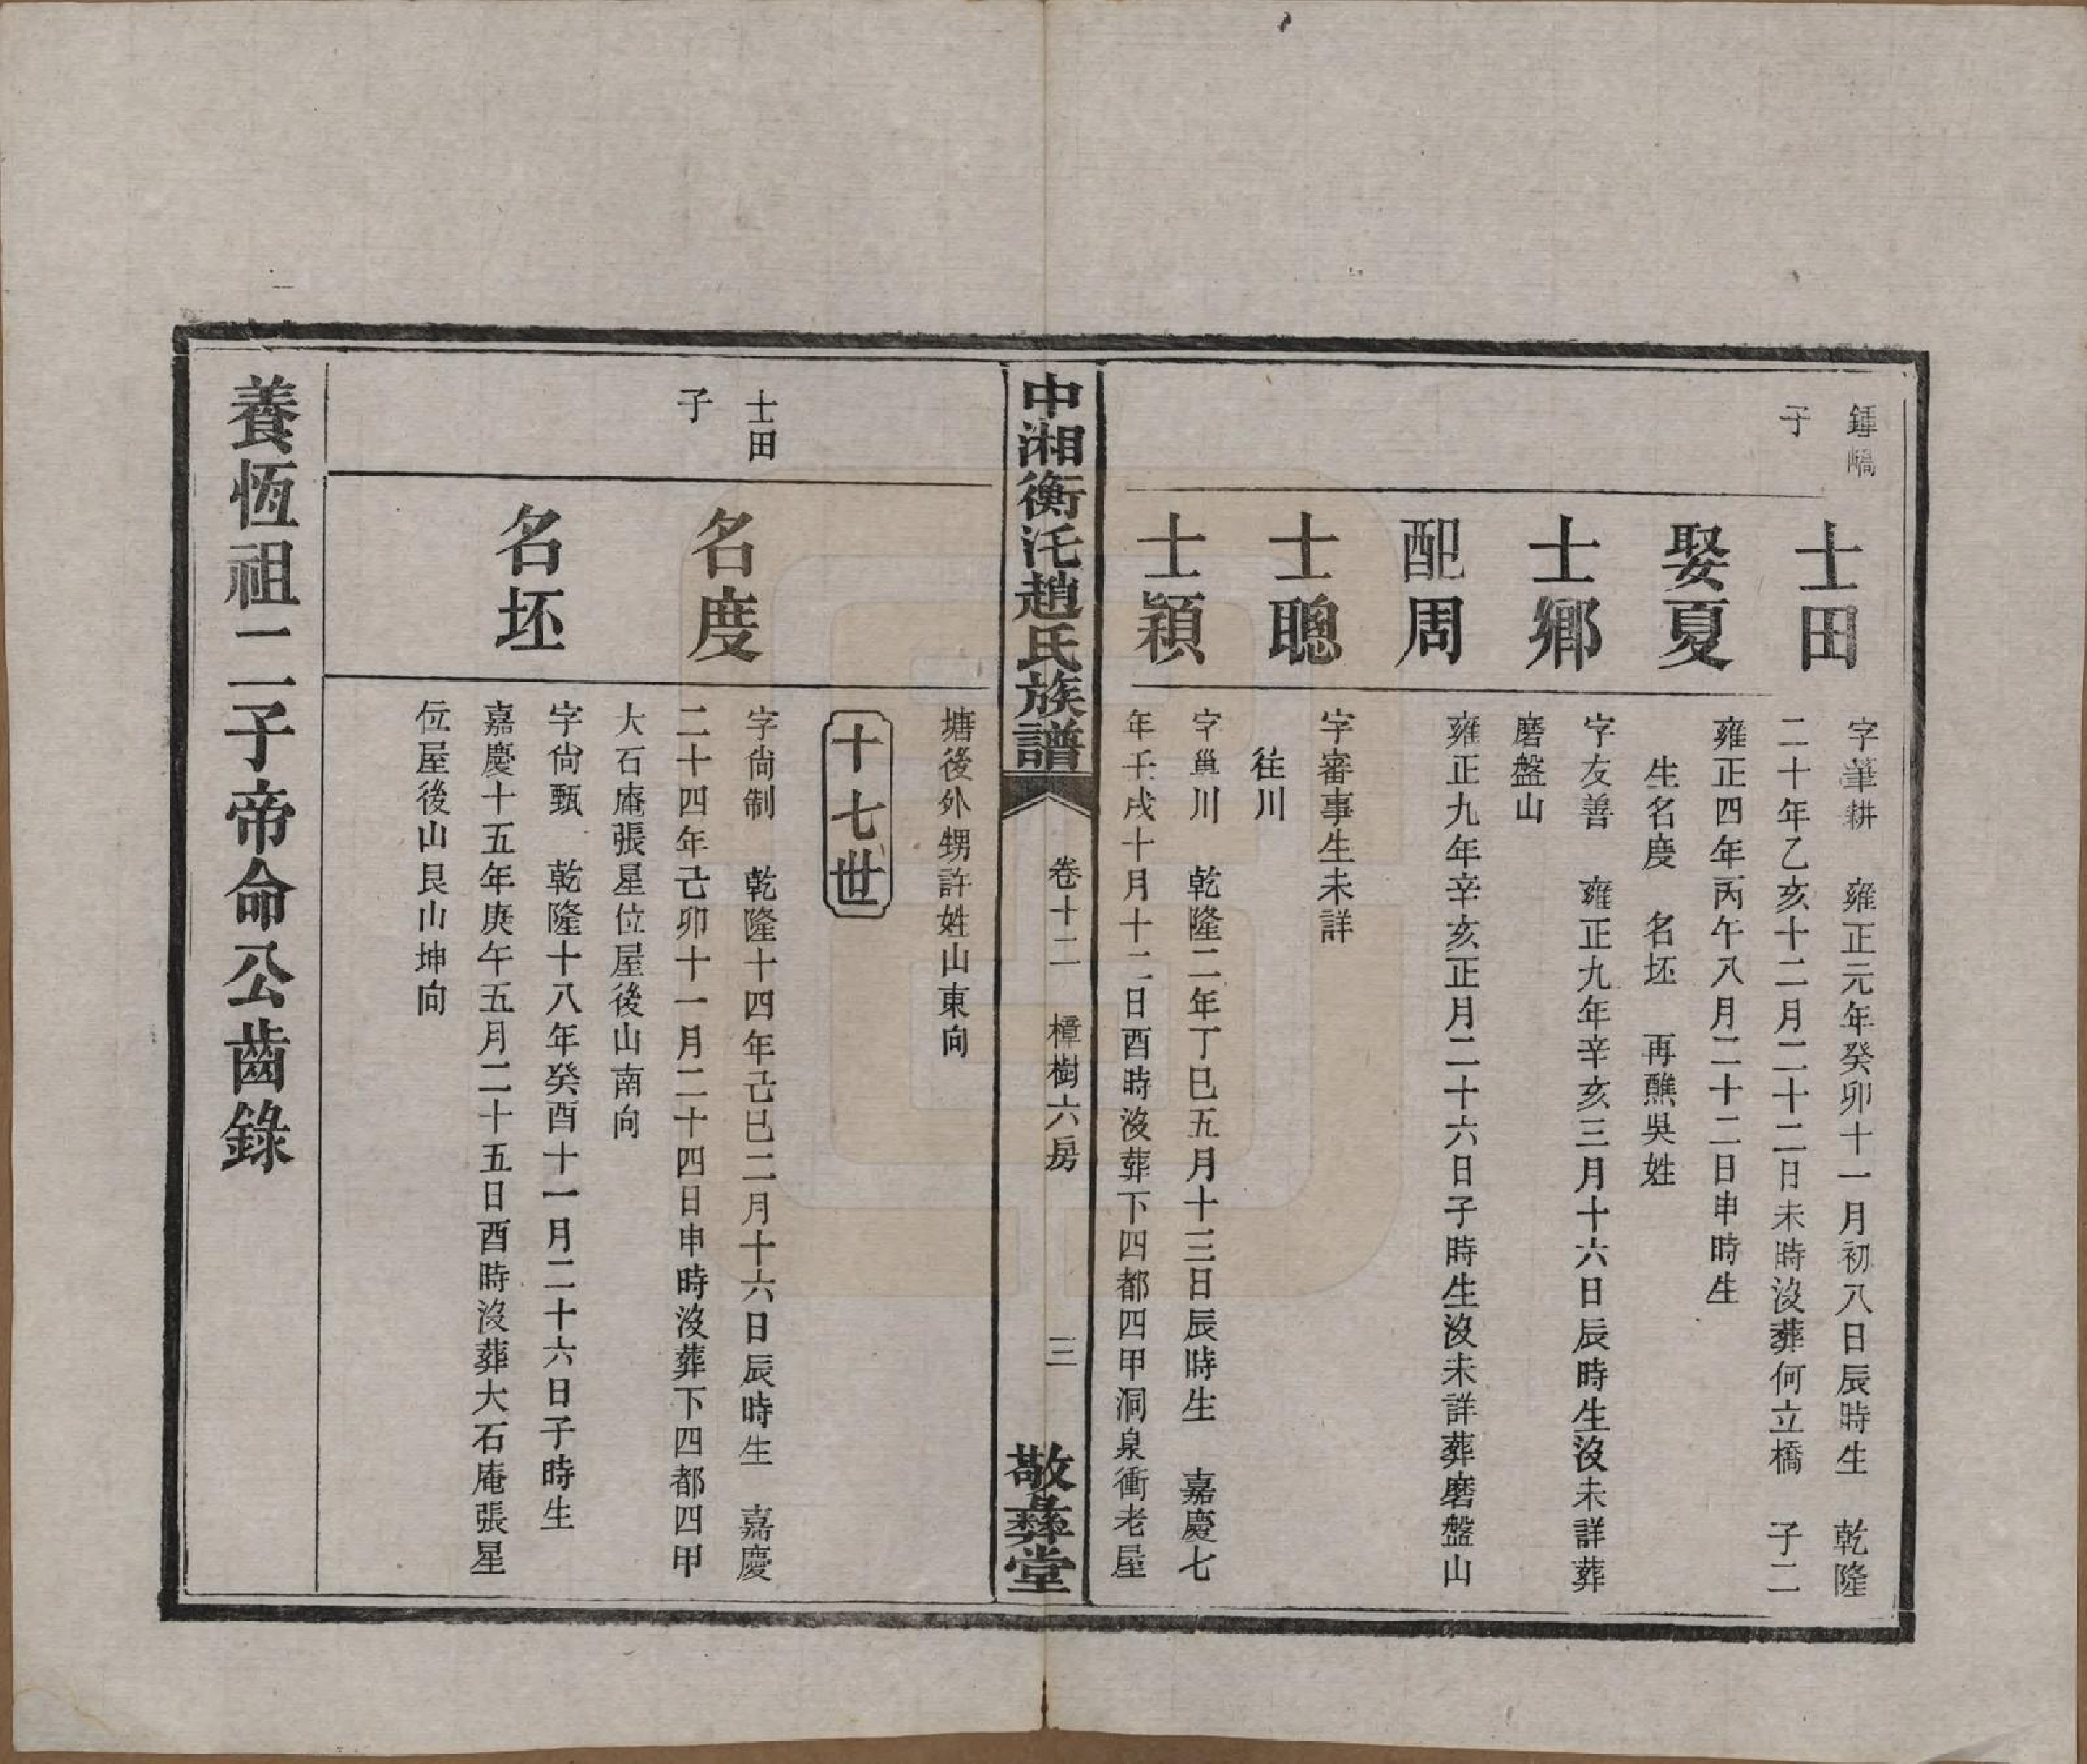 鍾嶹
子
士田
字筆耕　雍正元年癸卯十一月初八日辰時生　乾隆
二十年乙亥十二月二十二日未時沒葬何立橋　子二
娶夏
雍正四年丙午八月二十二日申時生
生名度　名坯　再醮吳姓
士鄉
字友善　雍正九年辛亥三月十六日辰時生沒未詳葬
磨盤山
配周
雍正九年辛亥正月二十六日子時生沒未詳葬磨盤山
士聰
字審事生未詳
往川
士穎
字巢川　乾隆二年丁巳五月十三日辰時生　嘉慶七
年壬戌十月十二日酉時沒葬下四都四甲洞泉衝老屋
中湘衡汑趙氏族譜
卷十二　樟樹六房
三
敬彝堂
塘後外甥許姓山東向
十七世
士田
子
名度
字尙制　乾隆十四年己巳二月十六日辰時生　嘉慶
二十四年己卯十一月二十四日申時沒葬下四都四甲
大石庵張星位屋後山南向
名坯
字尙甄　乾隆十八年癸酉十一月二十六日子時生
嘉慶十五年庚午五月二十五日酉時沒葬大石庵張星
位屋後山艮山坤向
養恆祖二子帝命公齒錄